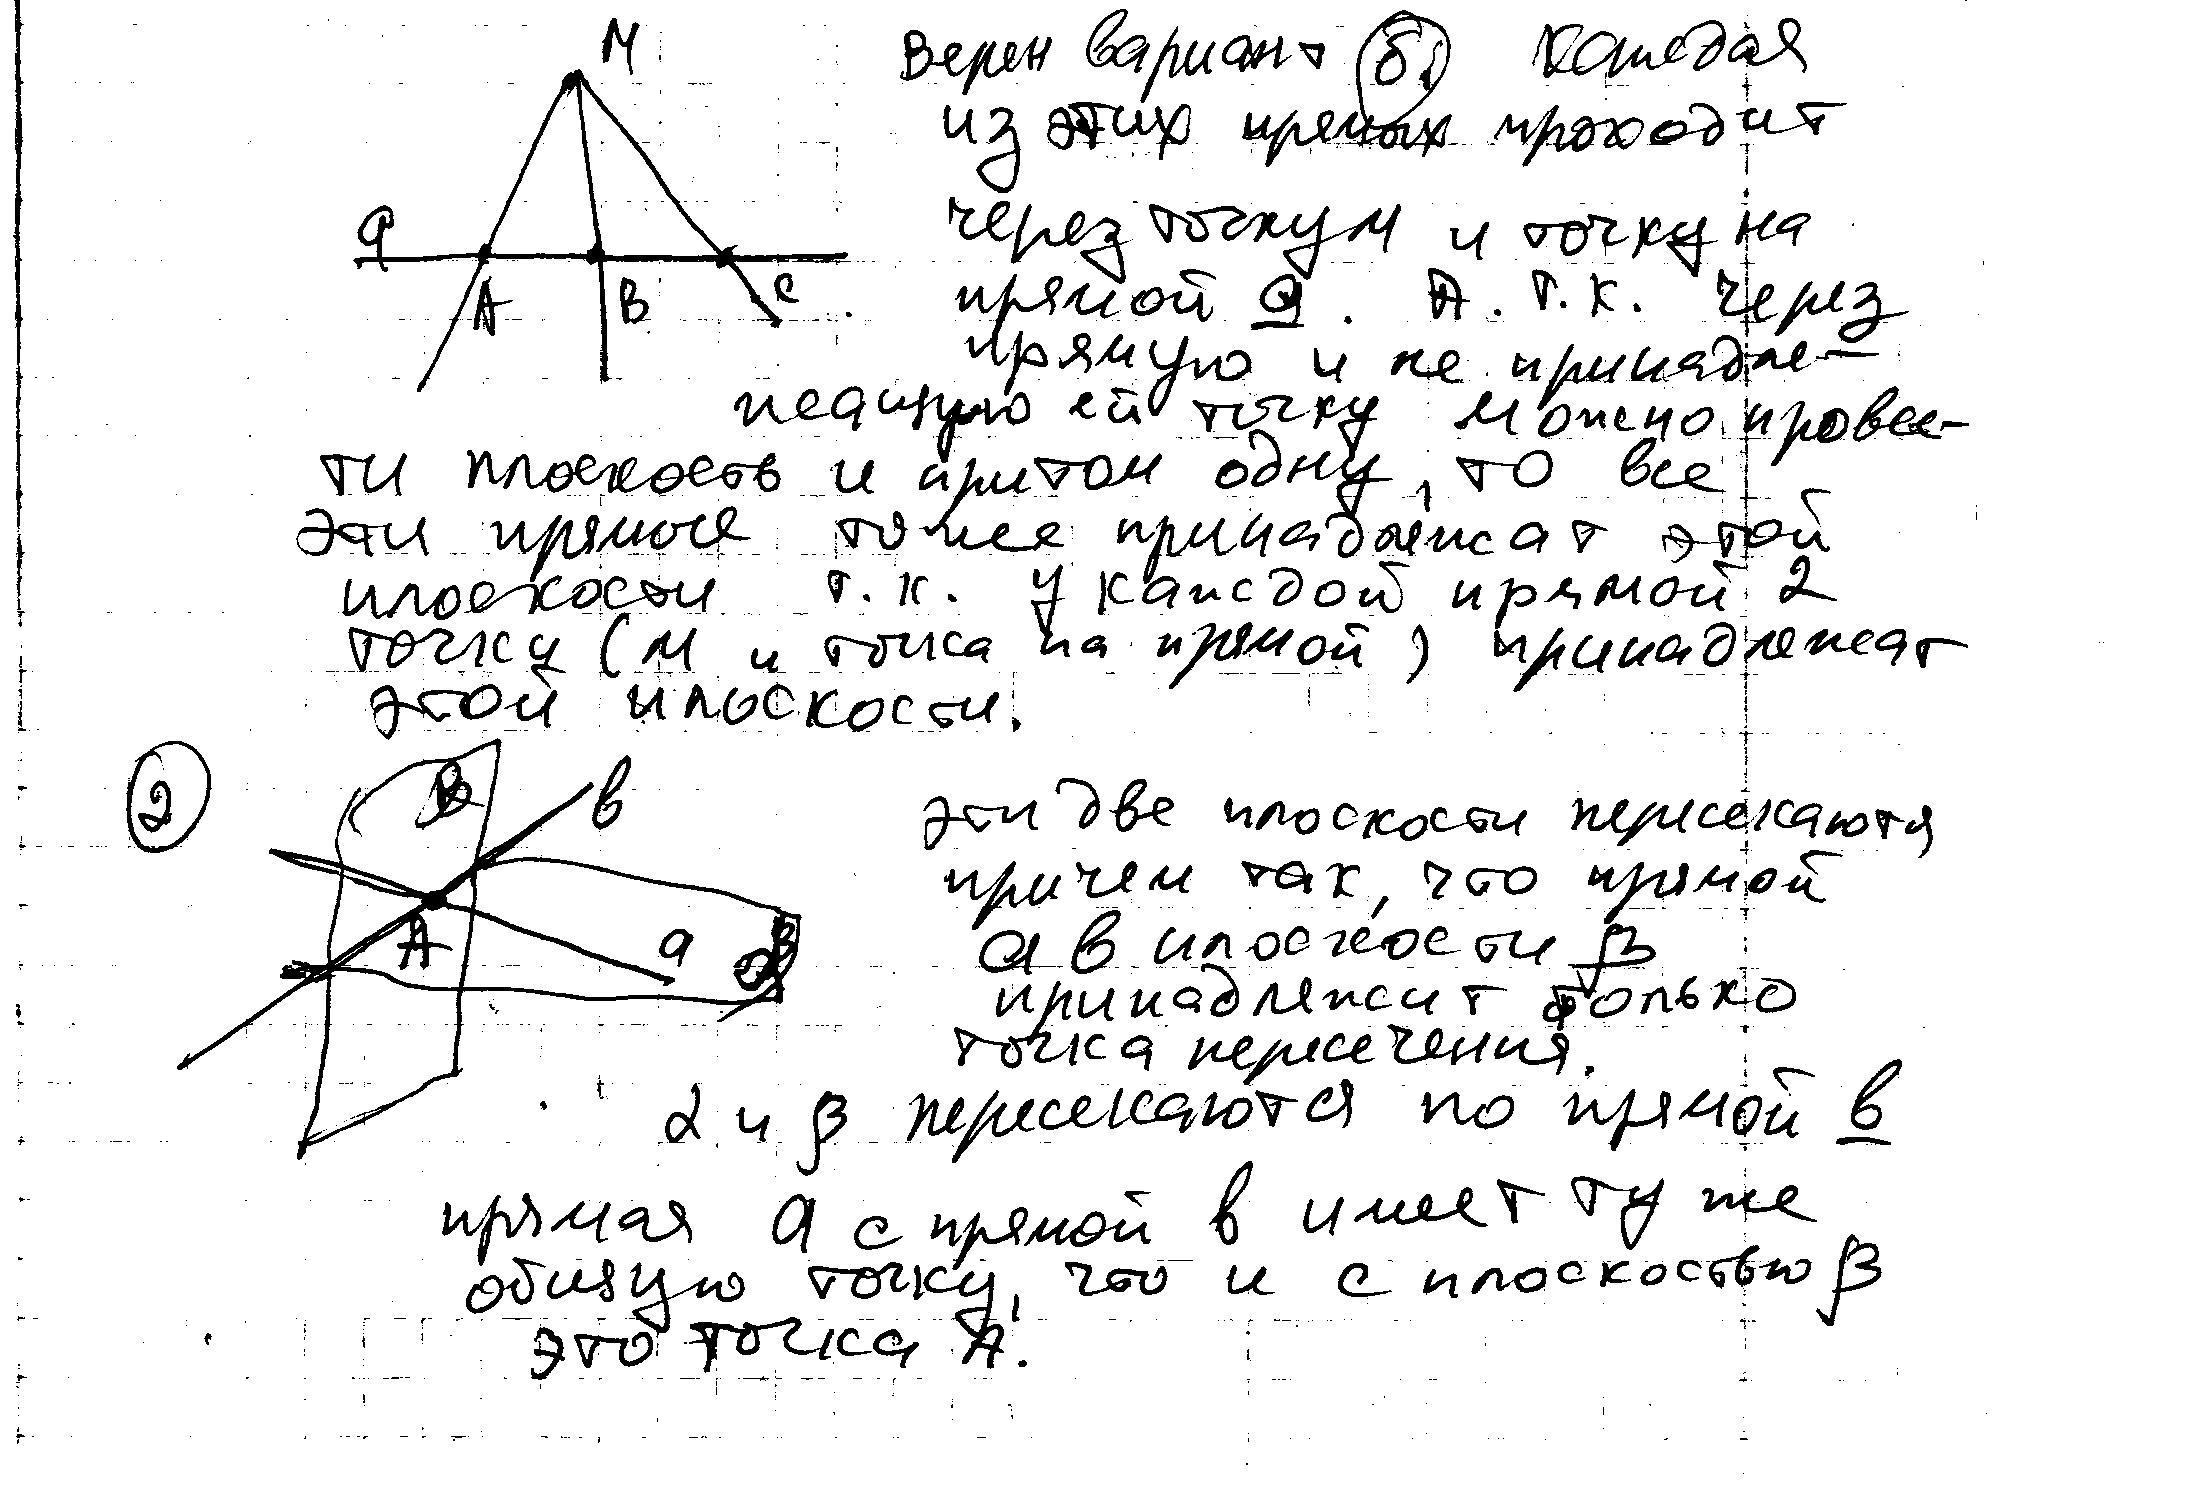 M
Верен вариант б)
Каждая
из этих прямых проходит
через точку М и точку на
прямой a. А т.к. через
прямую и не принадле-
жащую ей точку можно провес-
ти плоскость и притом одну, то все
эти прямые тоже принадлежат этой
плоскости т.к. у каждой прямой 2
точки (М и точка на прямой) принадлежат
этой плоскости.
a
A
B
C
2
в
A
a
эти две плоскости пересекаются
причем так, что прямой
а в плоскости β
принадлежит только
точка пересечения.
α и β пересекаются по прямой в
прямая а с прямой в имеет ту же
общую точку, что и с плоскостью β
это точка А.